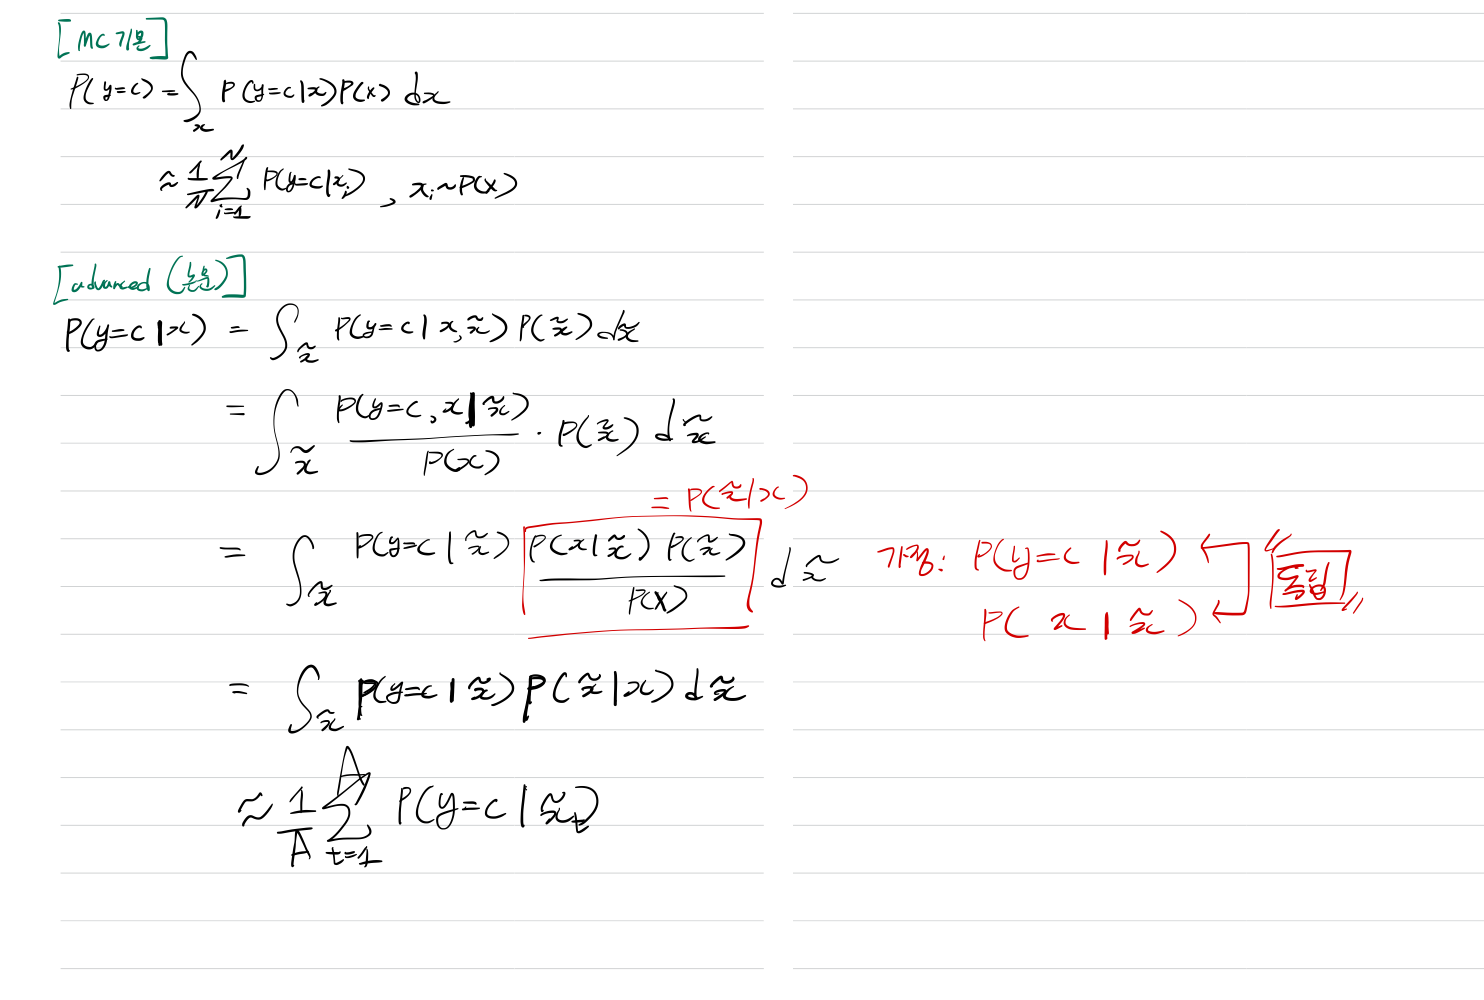 [MC 기본]
P(y=c) = ∫_x P(y=c|x)P(x) dx
≈ 1/N ∑_{i=1}^{N} P(y=c|x_i) , x_i ~ P(x)
[advanced (논문)]
P(y=c|x) = ∫_x̃ P(y=c|x,x̃) P(x̃) dx̃
= ∫_x̃ P(y=c,x|x̃) / P(x) · P(x̃) dx̃
= P(x̃|x)
= ∫_x̃ P(y=c|x̃) P(x|x̃) P(x̃) / P(x) dx̃ 가정: P(y=c|x̃) "독립"
P(x|x̃)
= ∫_x̃ P(y=c|x̃) P(x̃|x) dx̃
≈ 1/A ∑_{t=1}^{A} P(y=c|x̃_t)